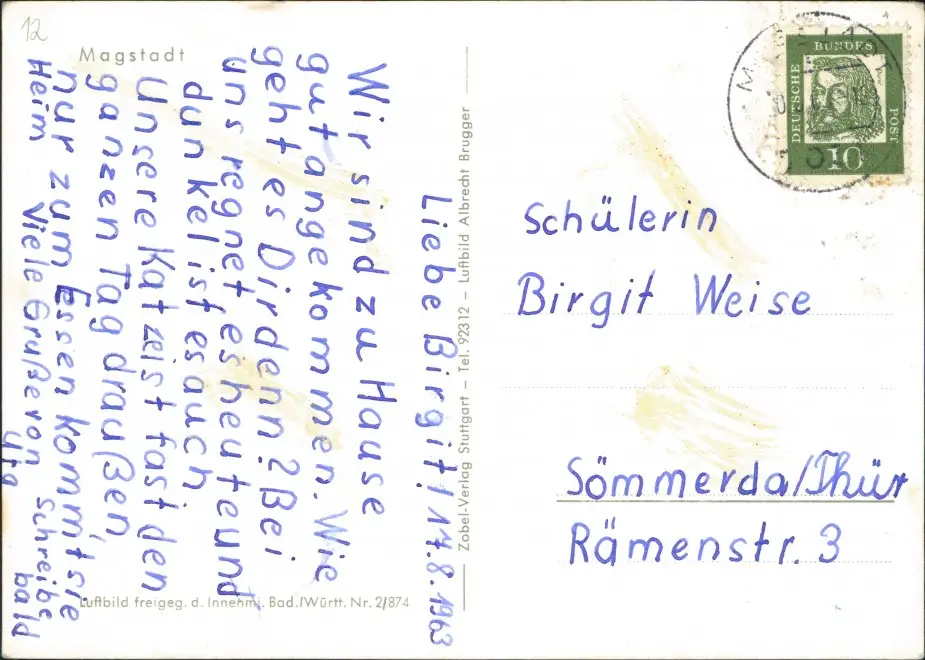 12
Magstadt
Liebe Birgit! 17.8.1963
Wir sind zu Hause
gut angekommen. Wie
geht es Dir denn? Bei
uns regnet es heute und
dunkel ist es auch.
Unsere Katze ist fast den
ganzen Tag draußen,
nur zum Essen kommt sie
Heim Viele Grüße von schreibe bald
Uta
Luftbild freigeg. d. Innenmi. Bad./Württ. Nr. 2/874
Zobel-Verlag Stuttgart – Tel. 92312 – Luftbild Albrecht Brugger
DEUTSCHE
BUNDES
POST
10
Schülerin
Birgit Weise
Sömmerda/Thür
Rämenstr. 3